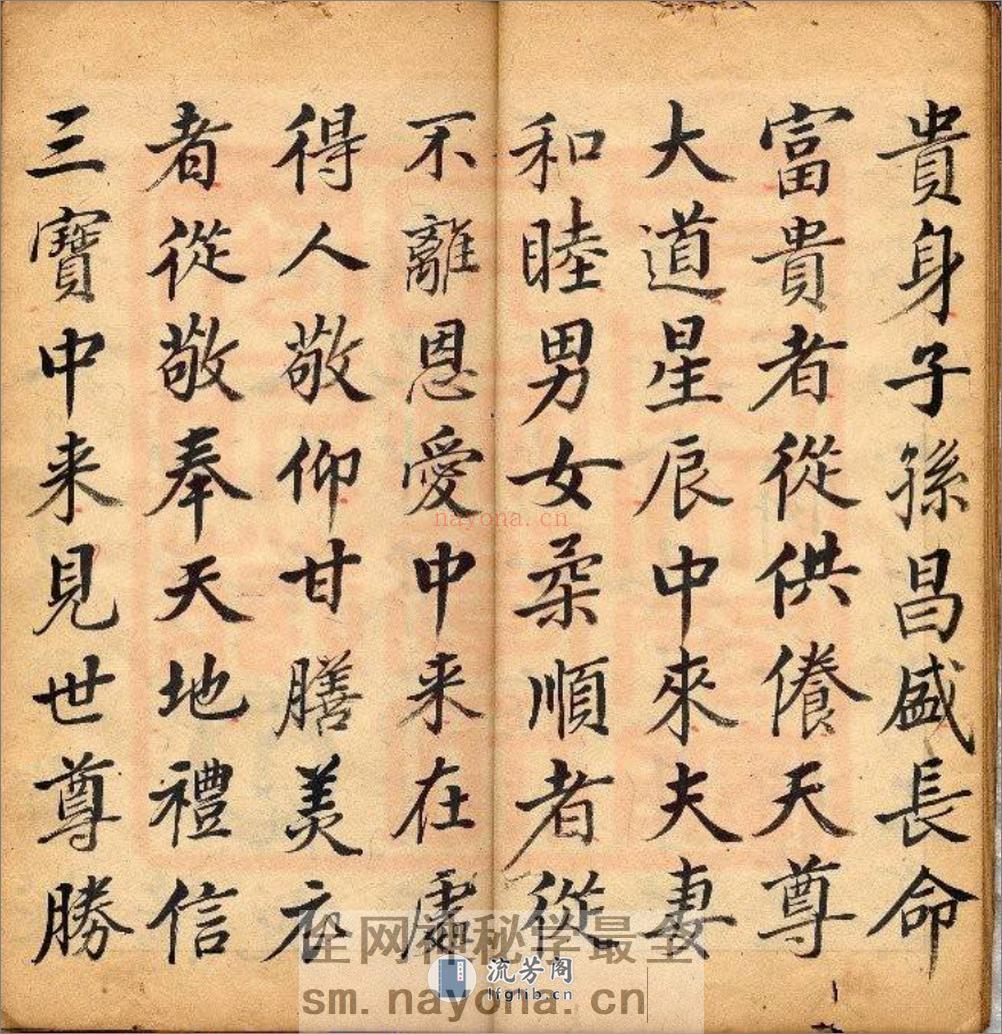 貴身子孫昌盛長命
富貴者從供養天尊
大道星辰中來夫妻
和睦男女柔順者從
不離恩愛中来在處
得人敬仰甘膳美衣
者從敬奉天地禮信
三寶中来見世尊勝
nayona.cn
全网神秘学最全
流芳阁
lfglib.cn
sm.nayona.cn